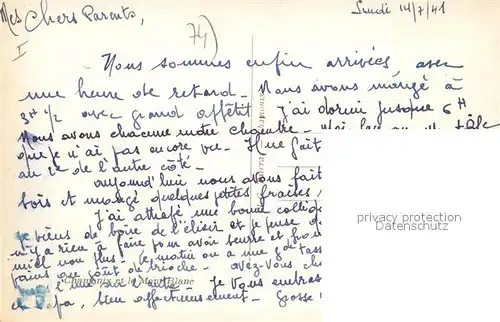 Mes Chers Parents,
Lundi 14/7/41
I
74
Nous sommes enfin arrivés, avec
une heure de retard - Nous avons mangé à
3H 1/2 avec grand appétit J'ai dormi jusque 6H
Nous avons chacune notre chambre -
que je n'ai pas encore vu - Il ne fait
au 2e de l'autre côté -
aujourd'hui nous avons fait
bois et mangé quelques petites fraises
J'ai attrapé une bonne
Je viens de boire de l'élixir et je pense
n'y a rien à faire pour avoir beurre et
miel non plus. Le matin on a une gde tasse
pains au goût de brioche - avez-vous
Chamonix et le Mont-Blanc
Je vous embrasse
et Papa, bien affectueusement - Grosse
privacy protection
Datenschutz